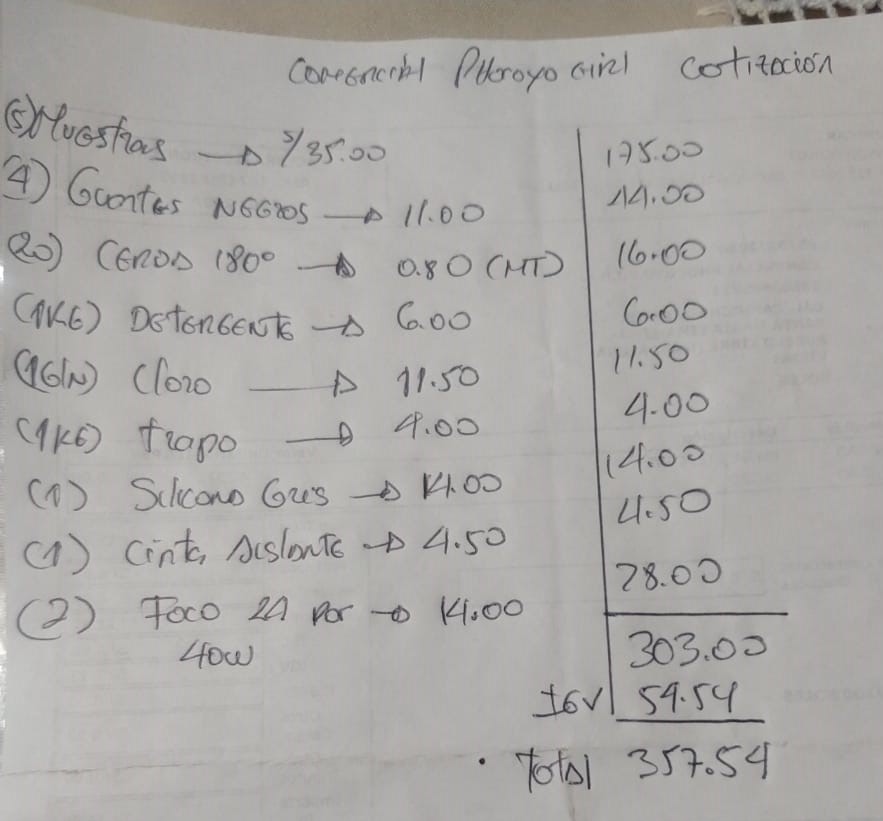 Comercial Pitroyo Girl cotización
(5) Muestras → S/35.00 175.00
(4) Guantes NEGROS → 11.00 44.00
(20) CEROD 180° → 0.80 (MT) 16.00
(1KG) DETERGENTE → 6.00 6.00
(1GlN) Cloro → 11.50 11.50
(1KG) trapo → 4.00 4.00
(1) Silicona Gris → 14.00 14.00
(1) Cinta Aislante → 4.50 4.50
(2) Foco 2A por → 14.00 28.00
40W
303.00
IGV 54.54
• Total 357.54